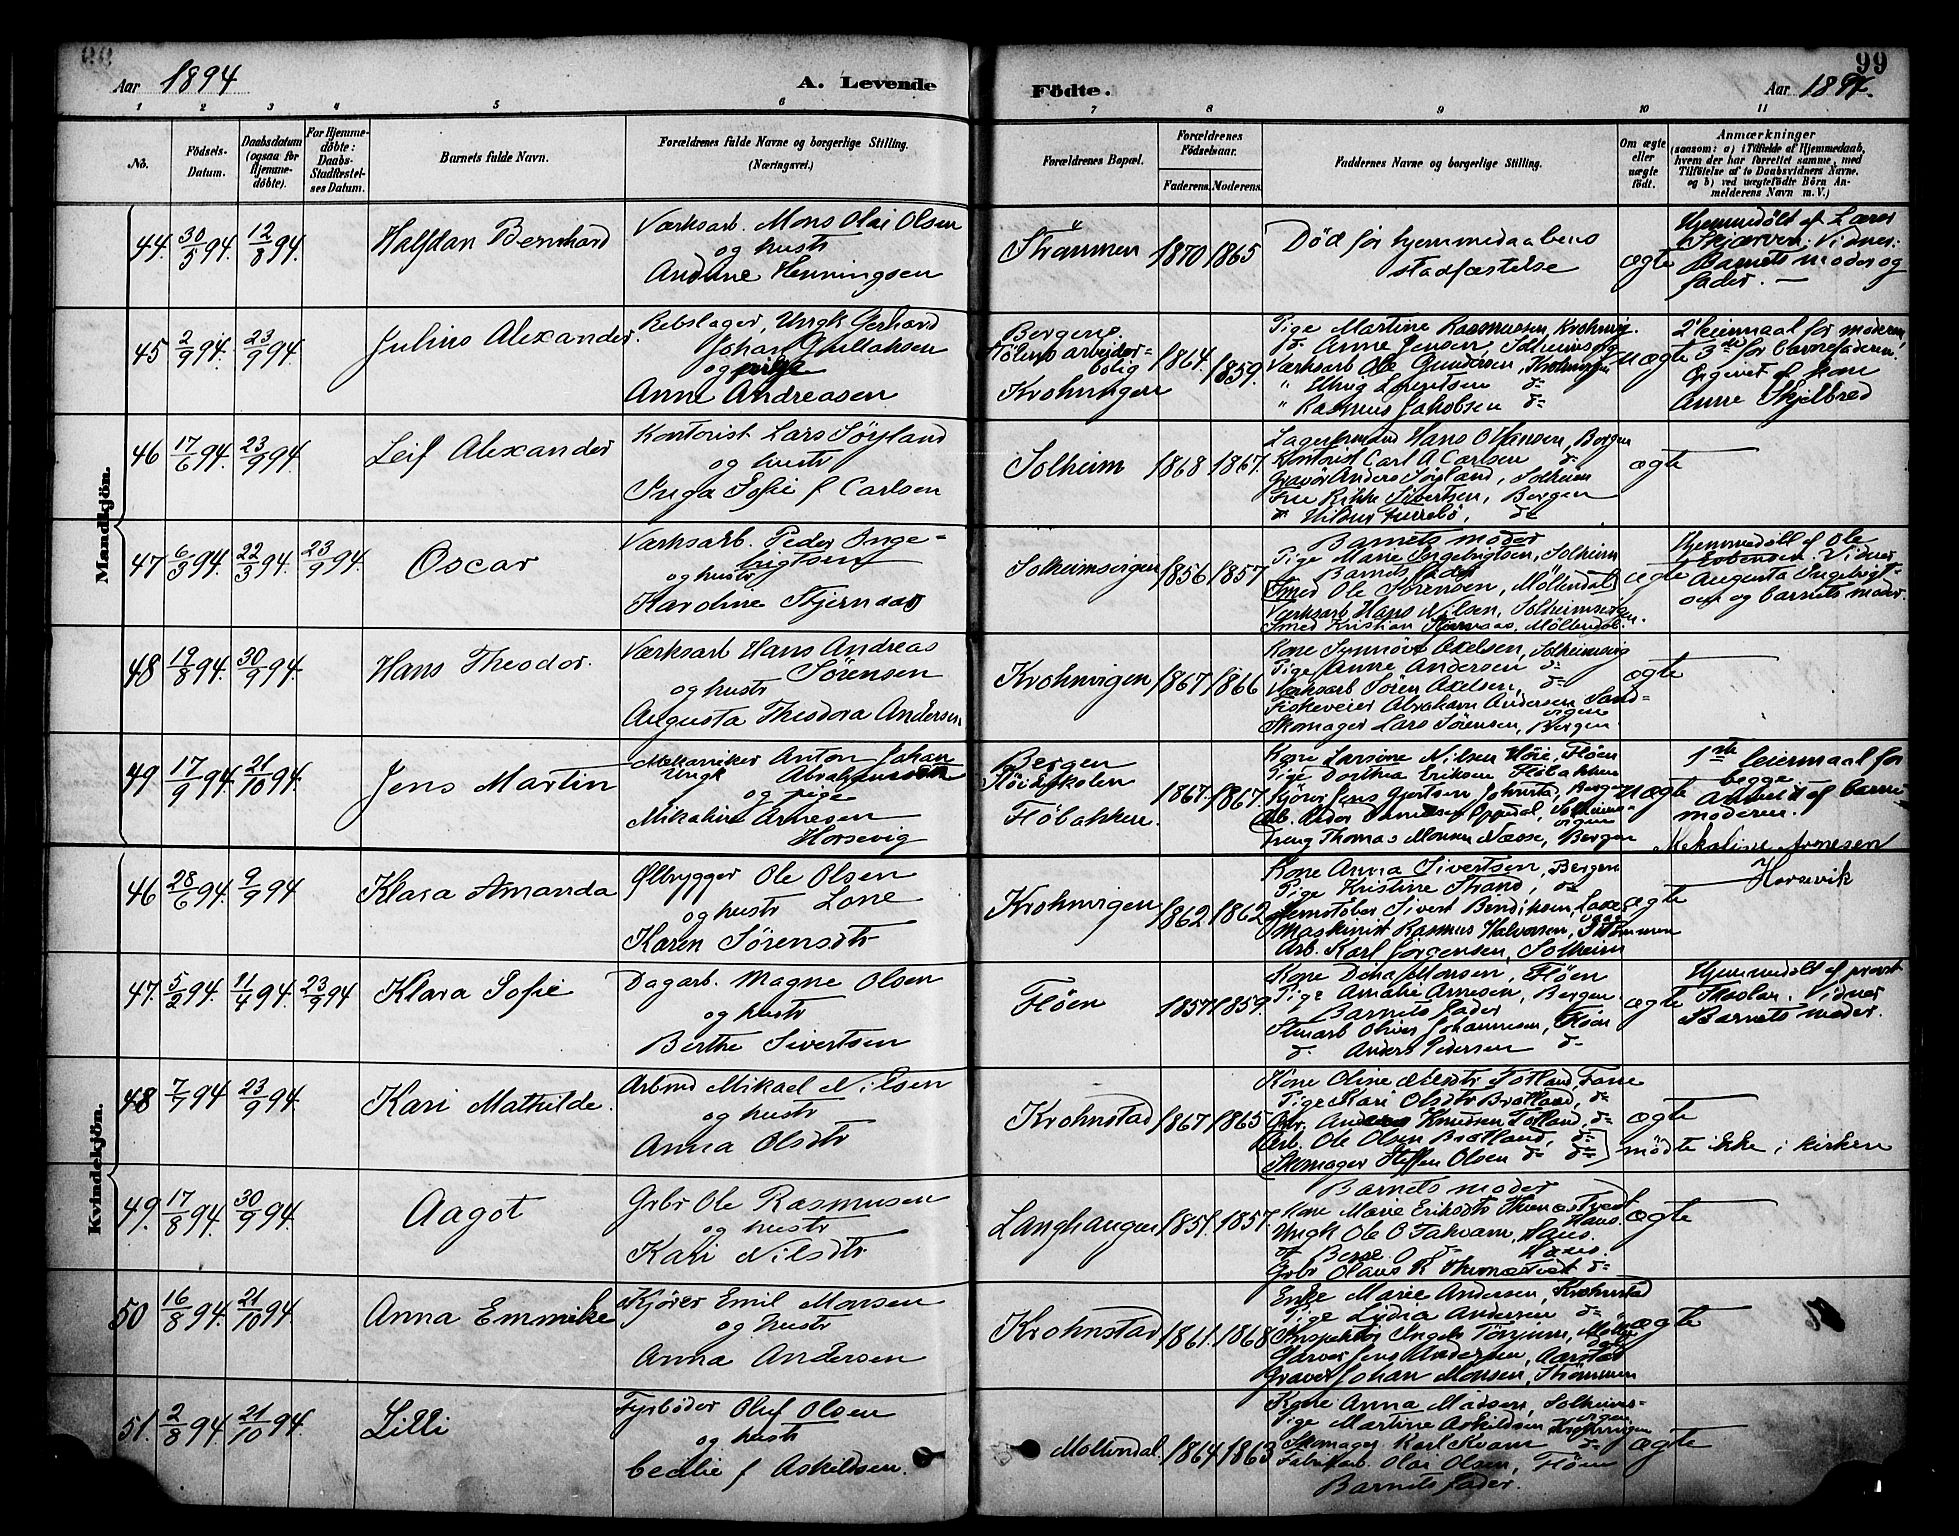 99
Aar 1894
A. Levende
Födte.
Aar 1894.
1 2 3 4 5 6 7 8 9 10 11
No.
Födsels-Datum.
Daabsdatum (ogsaa for Hjemmedöbte).
For Hjemmedöbte: Daabs-Stadfæstelses Datum.
Barnets fulde Navn.
Forældrenes fulde Navne og borgerlige Stilling. (Næringsvei.)
Forældrenes Bopæl.
Forældrenes Födselsaar.
Faderens. Moderens.
Faddernes Navne og borgerlige Stilling.
Om ægte eller uægte födt.
Anmærkninger
(saasom: a) i Tilfælde af Hjemmedaab,
hvem der har forrettet samme, med
Tilföielse af to Daabsvidners Navne,
og b) ved uægtefödte Börn An-
melderens Navn m. V.)
Mandkjön.
44. 30/5 94. 12/8 94.
Halfdan Bernhard
Værksarb. Mons Olai Olsen
og hustr
Andrine Henningsen
Strømmen
1870 1865
Død før hjemmedaabens
stadfæstelse
ægte
Hjemmedøbt af Lærer
Skjærven. Vidner:
Barnets moder og
fader. —
45 2/9 94. 23/9 94.
Julius Alexander.
Rebslager, Ungk Gerhard
Johan Gullaksen
og pige
Anne Andreasen
Bergens
arbeider-
bolig
Krohnvigen
1864. 1859.
Pige Martine Rasmussen, Krohnvig.
do Anne Jensen, Solheimsvig
Værksarb Ole Gundersen, Krohnvigen
" Lorentsen do
" Rasmus Jakobsen do
uægte
2' leiermaal for moderen,
3die for barnefaderen.
Opgivet af kone
Anne Skjelbred
46 17/6 94. 23/9 94.
Leif Alexander
Kontorist Lars Søyland
og hustr
Inga Sofie f Carlsen
Solheim
1868 1867.
Hans O Hansen, Bergen
Kontorist Carl A Carlsen do
Gravør Anders Søyland, Solheim
Frue Rikke Sivertsen, Bergen
ægte
47 6/3 94. 22/3 94. 23/9 94.
Oscar
Værksarb. Peder Inge-
brigtsen
og hustr
Karoline Stjernaas
Solheimsvigen
1856 1857
Barnets moder
Pige Marie Ingebrigtsen, Solheim
Barnets fader
Smed Ole Sørensen, Møllendal
Værksarb Hans Nilsen, Solheimsvigen.
Smed Kristian Stjernaas, Møllendal.
ægte
Hjemmedøbt af Ole
Vidner
Augusta Ingebrigt-
sen og barnets moder.
48 19/8 94. 30/9 94.
Hans Theodor.
Værksarb Hans Andreas
Sørensen
og hustr
Augusta Theodora Andersen
Krohnvigen
1867 1866
Kone Synnøve Axelsen, Solheimsvig
Pige Anne Andersen do
Værksarb Sören Axelsen, do
Fiskeveier Abraham Andersen Sand-
vigen
Skomager Lars Sørensen, Bergen.
ægte
49 17/9 94. 21/10 94.
Jens Martin
Mekaniker Anton Johan
Ungk Abrahamsen
og pige
Mikaline Arnesen
Horsevig
Bergen
Fløibakken.
1867. 1867.
Kone Larsine Nilsen Høie, Fløen
Pige Dorthea Eriksen Fløbakken
Kjører Jens Gjertsen Bergen
Oppedal, Solheims-
vigen
Dreng Thomas Monsen Næsse, Bergen
uægte
1ste leiermaal for
begge
Anmeldt af barne-
moderen.
Mekaline Arnesen
Horsevik
Kvindekjön.
46 28/6 94. 9/9 94
Klara Amanda
Ølbrygger Ole Olsen
og hustr Lone
Karen Sörensdtr
Krohnvigen
1862 1862
Kone Anna Sivertsen, Bergen
Pige Kristine Strand, do
Jernstøber Sivert Bendiksen, Laxe-
vaag
Maskinist Rasmus Halvorsen, Strømmen
Arb. Karl Jörgensen, Solheim
ægte
47. 5/2 94. 11/4 94. 23/9 94
Klara Sofie
Dagarb. Magne Olsen
og hustr
Berthe Sivertsen
Fløen
1857 1859.
Kone Dina Monsen, Fløen
Pige Amalie Arnesen, Bergen.
Barnets fader
Stenarb Oliver Johannesen, Fløen
do Anders Pedersen do
ægte
Hjemmedøbt af provst
Vidner
Barnets moder.
48 7/7 94 23/9 94.
Kari Mathilde.
Arbmd Mikael Nilsen
og hustr
Anna Olsdtr
Krohnstad
1867 1865
Kone Oline Nilsdtr Totland, Fane
Pige Kari Olsdtr Bratland, do
Arb. Anders Knudsen Totland, do
Arb. Ole Olsen Bratland, do
Skomager Steffen Olsen do do
ægte
mødte ikke i kirken
49. 17/8 94. 30/9 94.
Aagot
Grbr Ole Rasmusen
og hustr
Kari Nilsdtr
Langhaugen
1851. 1857.
Barnets moder
Kone Marie Eriksdtr
Haus.
Ungk Ole O Takvam, Haus.
Haus.
Grbr Olaus R do
ægte
50 16/8 94. 21/10 94.
Anna Emmike
Kjører Emil Monsen
og hustr
Anna Andersen
Krohnstad
1861. 1868
Enke Marie Andersen Krohnstad
Pige Lydia Andersen do
Garver Jens Andersen, Aarstad
Graver Johan Monsen, Strömmen
ægte
51. 2/8 94. 21/10 94.
Lilli
Fyrbøder Oluf Olsen
og hustr
Cecilie f Askildsen.
Møllendal.
1864 1863
Kone Anna Madsen, Solheims-
vigen
Pige Martine Askildsen Krohnvigen
Skomager Karl Kvam do
Fabrikarb. Olai Olsen, Fløen
Barnets fader.
ægte